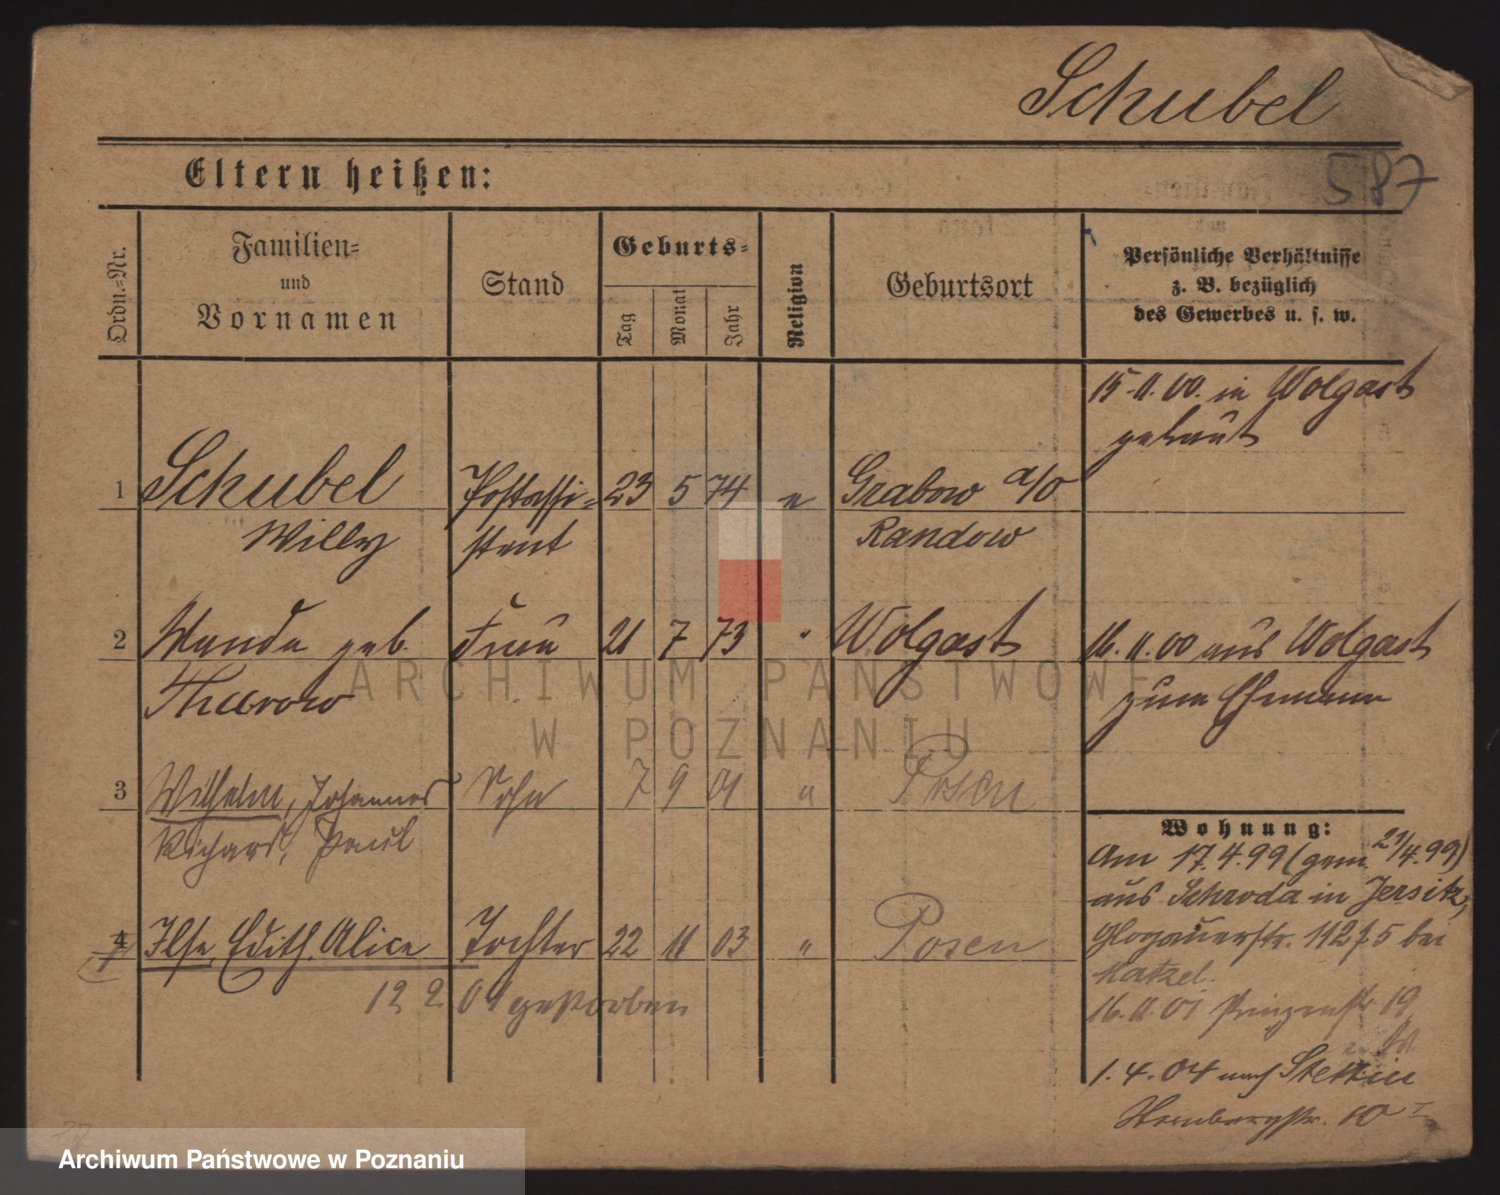 Schubel
587
Eltern heißen:
Ordn.-Nr.
Familien-
und
Vornamen
Stand
Geburts-
Tag
Monat
Jahr
Religion
Geburtsort
Persönliche Verhältnisse
z. B. bezüglich
des Gewerbes u. s. w.
15.11.00. in Wolgast
getraut
1 Schubel Postassi- 23 5 74 e Grabow a/O
Willy stent Randow
2 Wanda geb. Frau 21 7 73 " Wolgast 16.11.00 aus Wolgast
zum Ehemann
3 Wilhelm, Johannes Sohn 7 9 01 " Posen
Richard, Paul
Wohnung:
Am 17.4.99 (gem. 21/4.99)
aus Schroda in Jersitz,
4 Ilse, Edith, Alice Tochter 22 11 03 " Posen
Glogauerstr. 112 f. 5 bei
Katzel.
12 2. 04 gestorben
16.11.01 Prinzenstr. 19
1.4.04 nach Stettin
10 I
ARCHIWUM PAŃSTWOWE
W POZNANIU
Archiwum Państwowe w Poznaniu